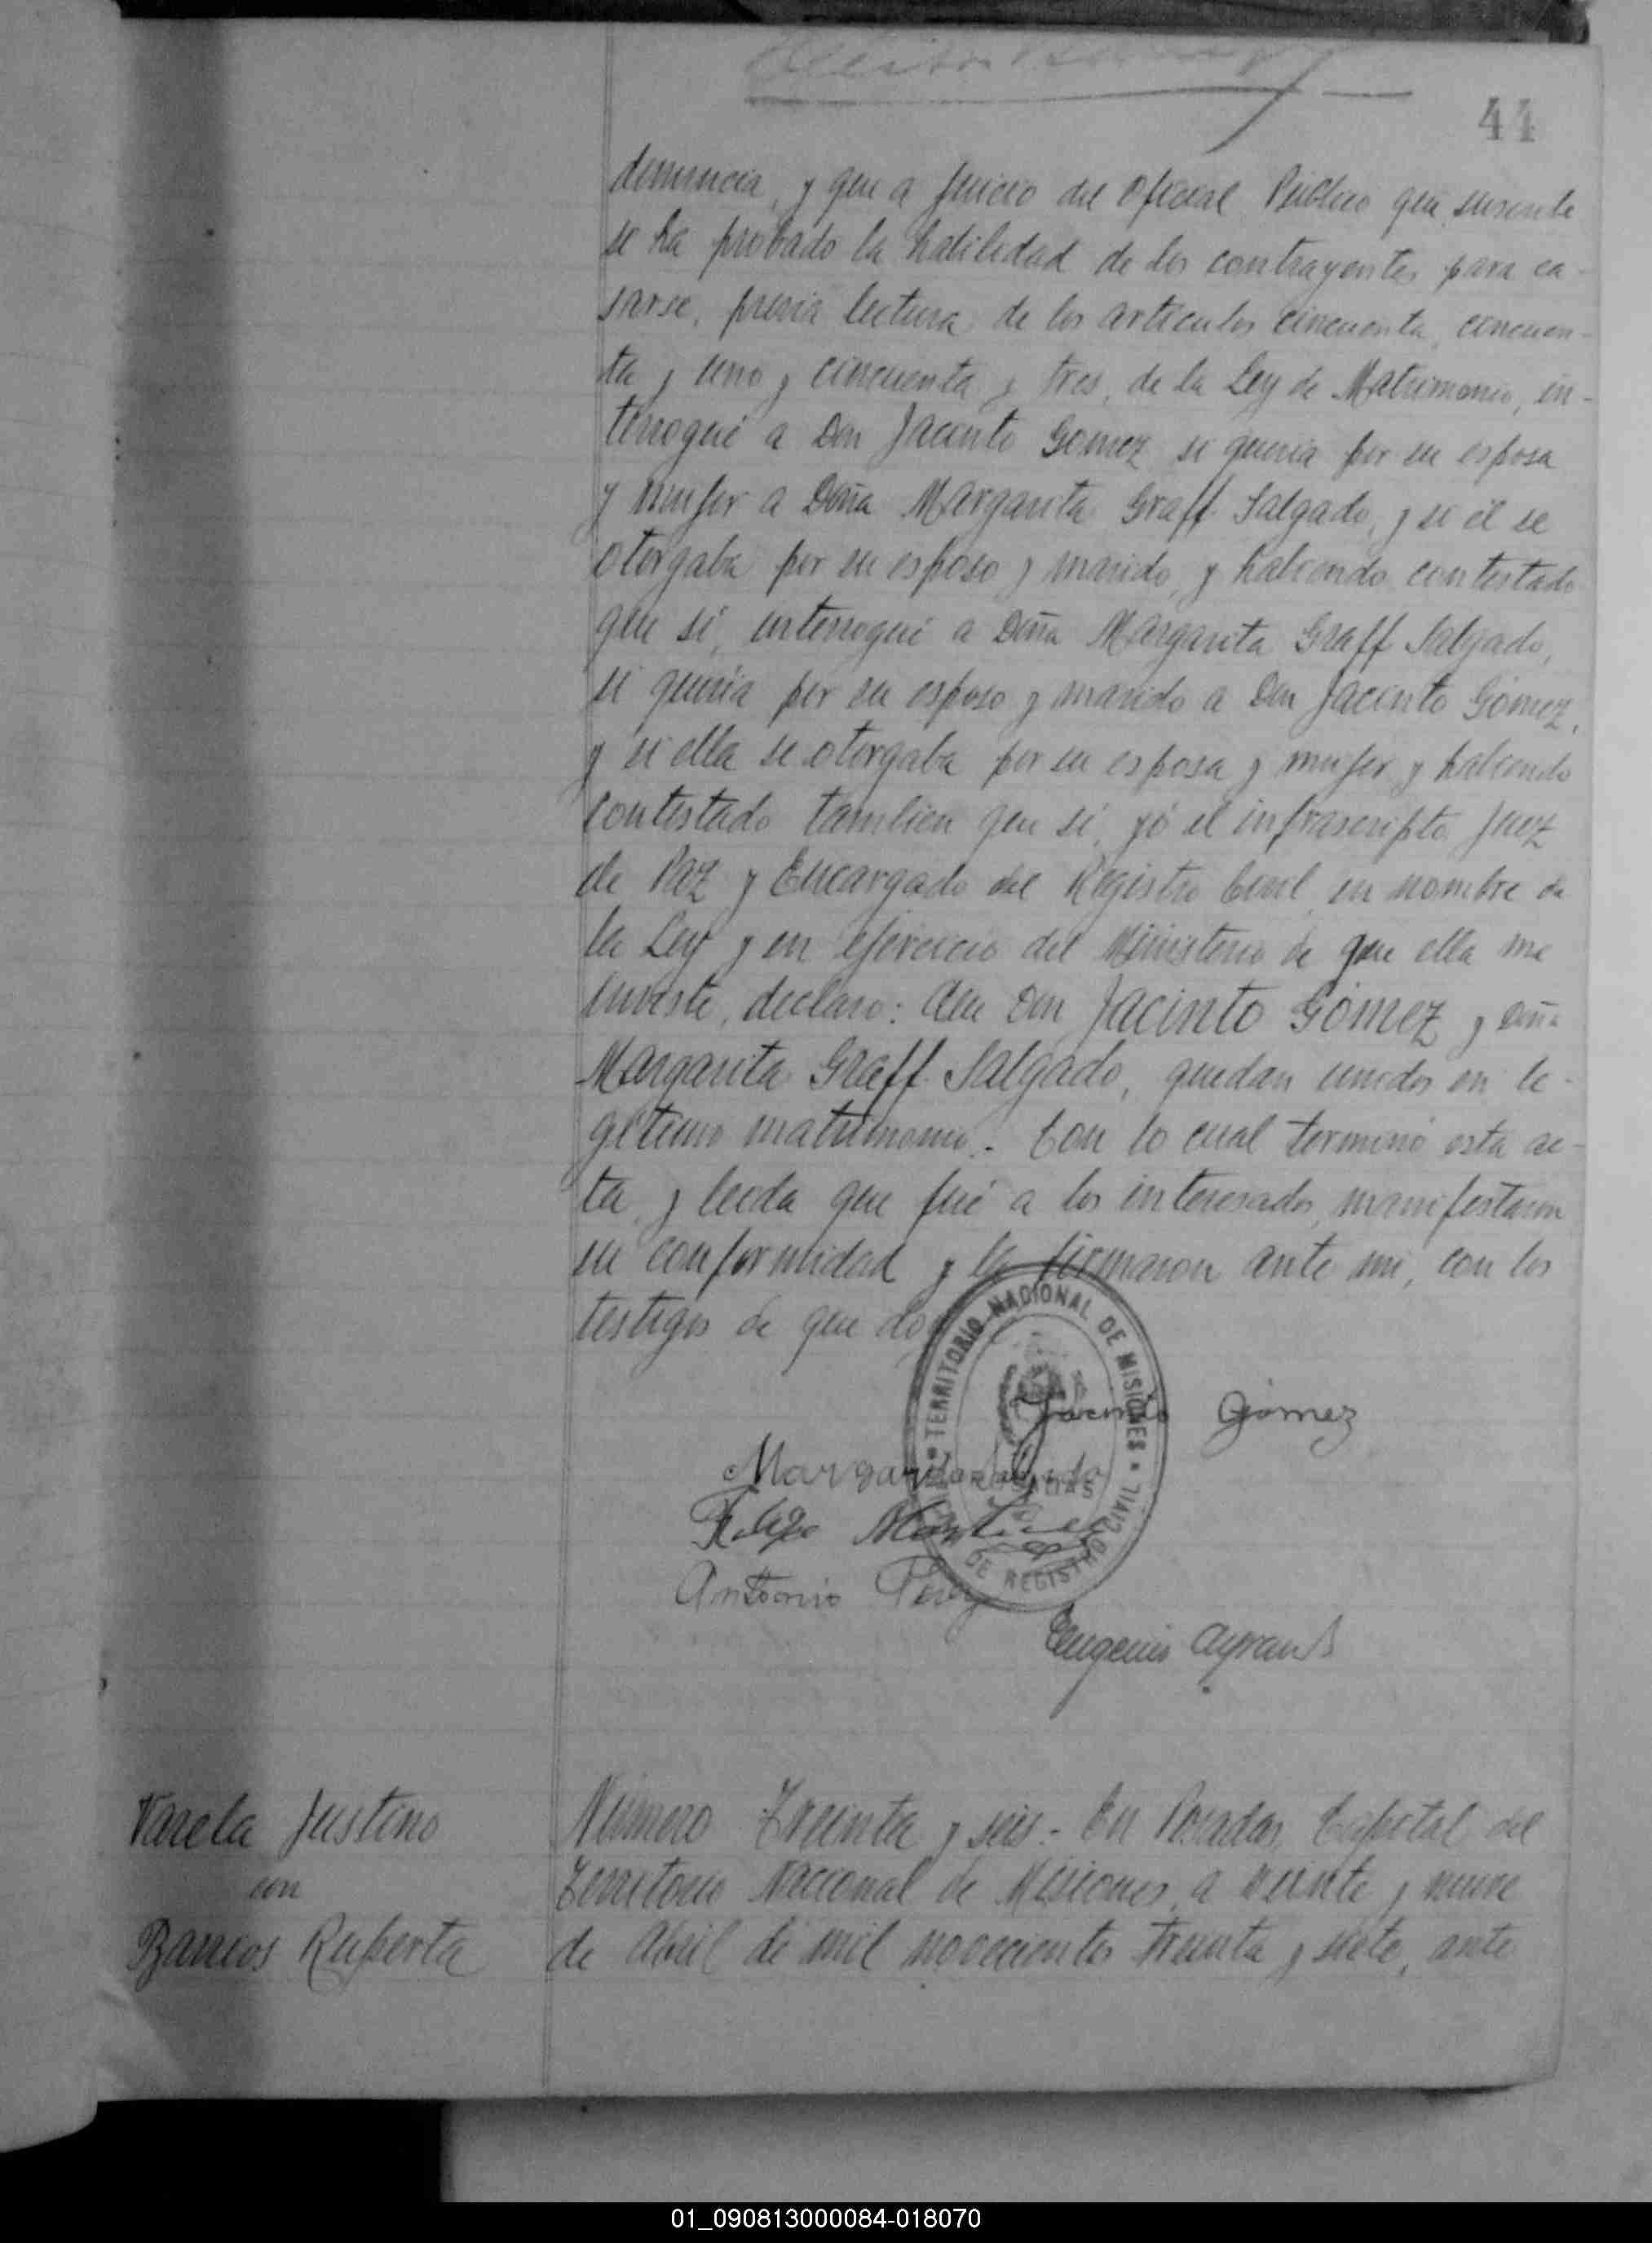 44
denuncia, y que a juicio del Oficial Público que suscribe
se ha probado la habilidad de los contrayentes para ca-
sarse, previa lectura de los artículos cincuenta, cincuen-
ta y uno y cincuenta y tres, de la Ley de Matrimonio, in-
terrogué a Don Jacinto Gomez si quería por su esposa
y mujer a Doña Margarita Graff Salgado, y si él se
otorgaba por su esposo y marido, y habiendo contestado
que sí, interrogué a Doña Margarita Graff Salgado,
si quería por su esposo y marido a Don Jacinto Gómez,
y si ella se otorgaba por su esposa y mujer y habiendo
contestado tambien que sí, yó el infrascripto Juez
de Paz y Encargado del Registro Civil, en nombre de
la Ley y en ejercicio del Ministerio de que ella me
inviste, declaro: Que Don Jacinto Gómez y Doña
Margarita Graff Salgado, quedan unidos en le-
gítimo matrimonio.- Con lo cual terminó esta ac-
ta, y leida que fué a los interesados, manifestaron
su conformidad y la firmaron ante mi, con los
testigos de que doy
TERRITORIO NACIONAL DE MISIONES
DE REGISTRO CIVIL
Jacinto Gómez
Margarita Salgado
Felipe Martinez
Antonio Perez
Eugenio
Varela Justino
con
Barrios Ruperta
Número Treinta y seis.- En Posadas, Capital del
Territorio Nacional de Misiones, a veinte y nueve
de Abril de mil novecientos treinta y siete, ante
01_090813000084-018070